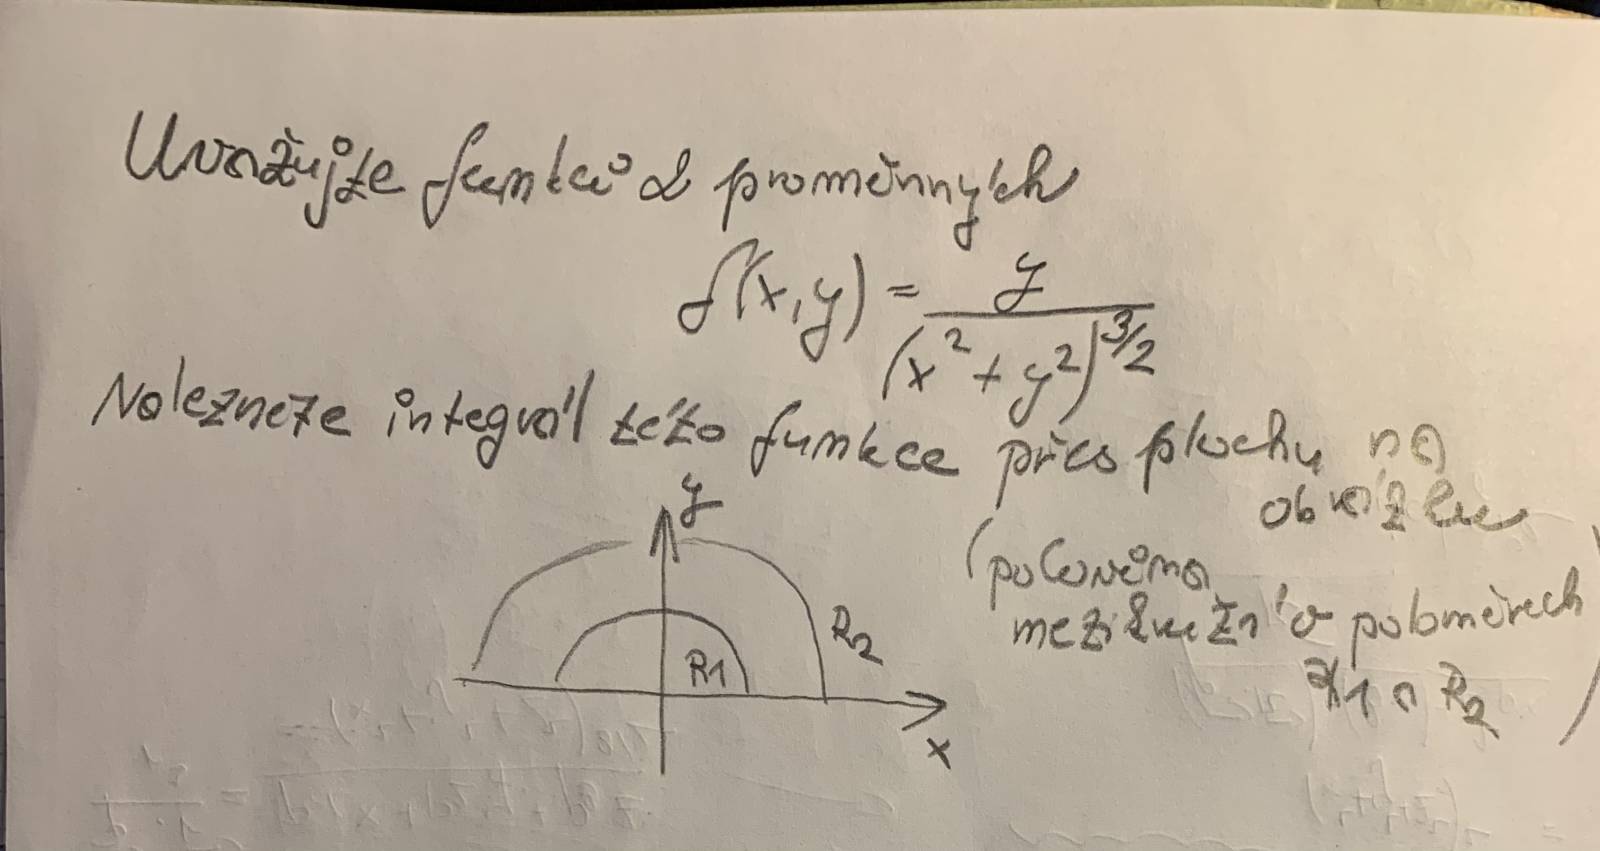 Uvažujte funkci 2 proměnných
f(x,y) = y / (x² + y²)^3/2
Nalezněte integrál této funkce přes plochu na
obrázku
(polovina
mezikruží o poloměrech
R1 a R2)
y
R2
R1
x